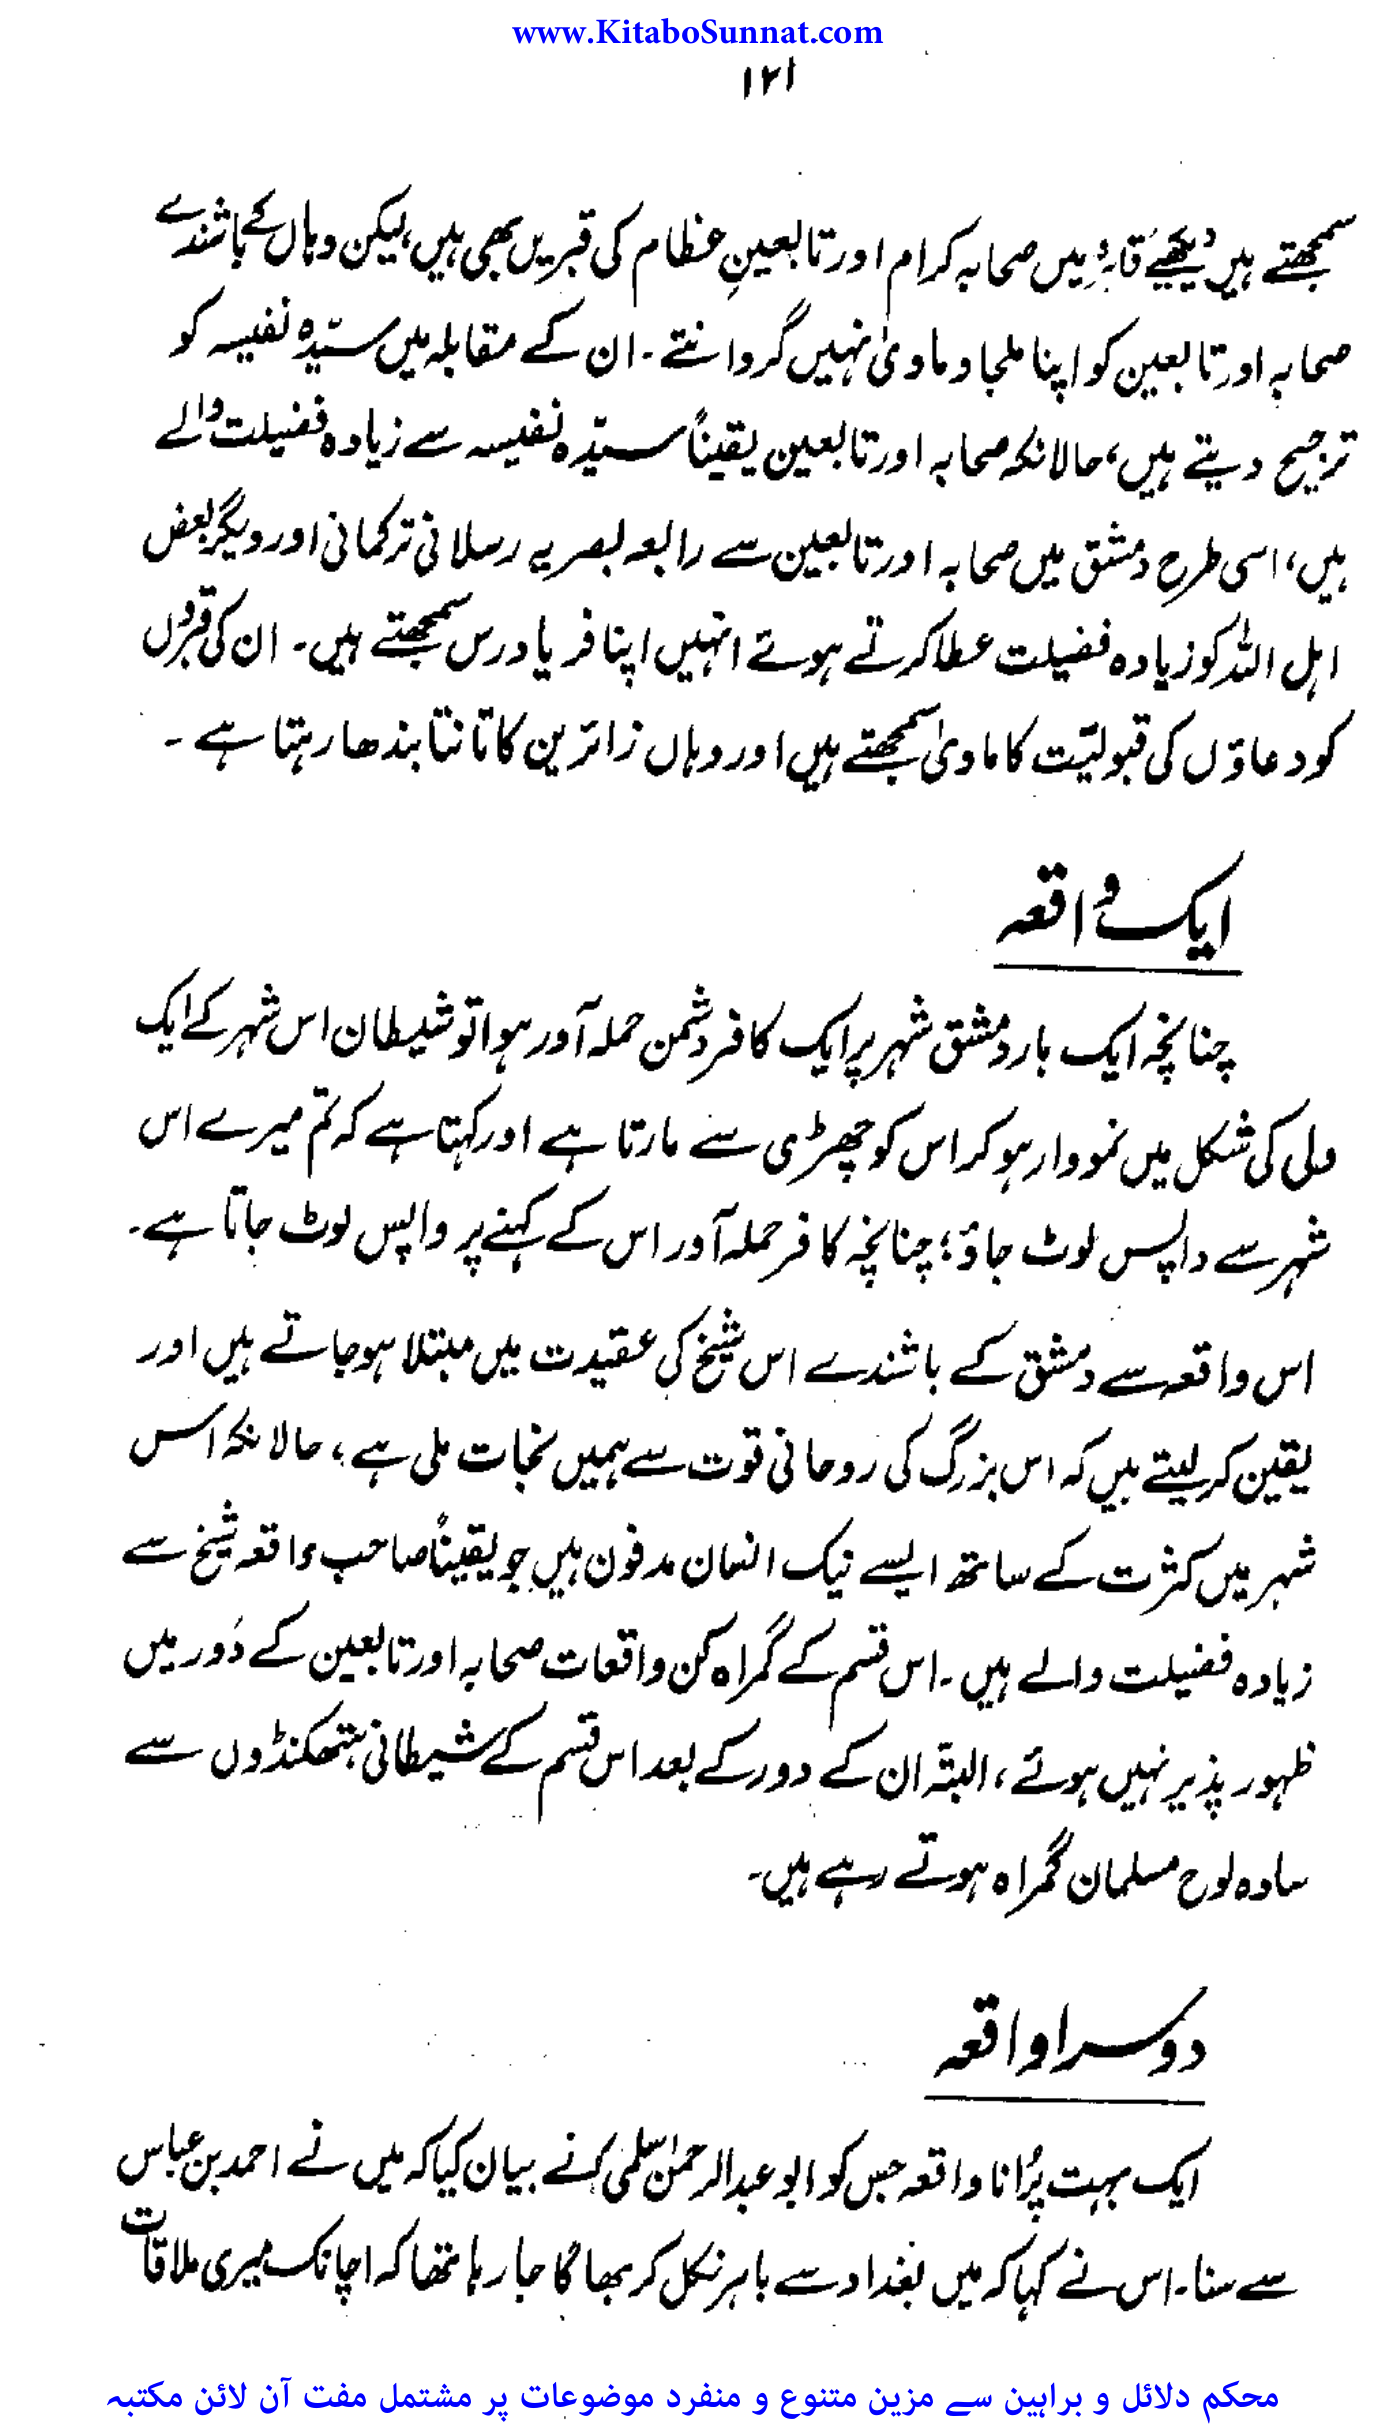 www.KitaboSunnat.com
۱۲۱
سمجھتے ہیں دیکھیے قاہرہ میں صحابہ کرام اور تابعینِ عظام کی قبریں بھی ہیں، لیکن وہاں کے باشندے
صحابہ اور تابعین کو اپنا ملجا و ماویٰ نہیں گردانتے۔ ان کے مقابلہ میں سیّدہ نفیسہ کو
ترجیح دیتے ہیں، حالانکہ صحابہ اور تابعین یقیناً سیّدہ نفیسہ سے زیادہ فضیلت والے
ہیں، اسی طرح دمشق میں صحابہ اور تابعین سے رابعہ بصریہ رسلانی ترکمانی اور دیگر بعض
اہل اللہ کو زیادہ فضیلت عطا کرتے ہوئے انہیں اپنا فریاد رس سمجھتے ہیں۔ ان کی قبروں
کو دعاؤں کی قبولیّت کا ماویٰ سمجھتے ہیں اور وہاں زائرین کا تانتا بندھا رہتا ہے۔
ایک واقعہ
چنانچہ ایک بار دمشق شہر پر ایک کافر دشمن حملہ آور ہوا تو شیطان اس شہر کے ایک
ولی کی شکل میں نمودار ہو کر اس کو چھڑی سے مارتا ہے اور کہتا ہے کہ تم میرے اس
شہر سے واپس لوٹ جاؤ؛ چنانچہ کافر حملہ آور اس کے کہنے پر واپس لوٹ جاتا ہے۔
اس واقعہ سے دمشق کے باشندے اس شیخ کی عقیدت میں مبتلا ہو جاتے ہیں اور
یقین کر لیتے ہیں کہ اس بزرگ کی روحانی قوت سے ہمیں نجات ملی ہے، حالانکہ اس
شہر میں کثرت کے ساتھ ایسے نیک انسان مدفون ہیں جو یقیناً صاحب واقعہ شیخ سے
زیادہ فضیلت والے ہیں۔ اس قسم کے گمراہ کن واقعات صحابہ اور تابعین کے دَور میں
ظہور پذیر نہیں ہوئے، البتہ ان کے دور کے بعد اس قسم کے شیطانی ہتھکنڈوں سے
سادہ لوح مسلمان گمراہ ہوتے رہے ہیں۔
دوسرا واقعہ
ایک بہت پُرانا واقعہ جس کو ابو عبدالرحمٰن سلمی نے بیان کیا کہ میں نے احمد بن عباس
سے سنا۔ اس نے کہا کہ میں بغداد سے باہر نکل کر بھاگا جا رہا تھا کہ اچانک میری ملاقات
محکم دلائل و براہین سے مزین متنوع و منفرد موضوعات پر مشتمل مفت آن لائن مکتبہ